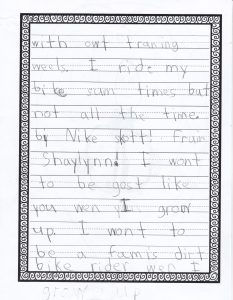 with owt traning
weels. I ride my
bike sum times but
not all the time.
by Nike yott! Frum
Shaylynn! I wont
to be gost like
you wen I grow
up. I wont to
be a famis dirt
bike rider wen I
grow up